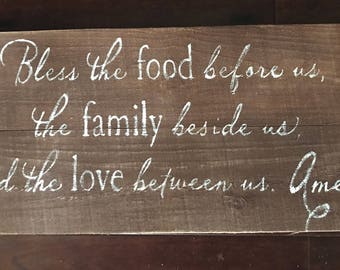 Bless the food before us,
the family beside us,
d the love between us. Ame